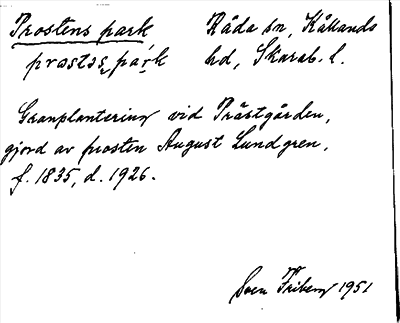 Prostens park, Råda sn, Kållands
prostəs park hd, Skarab. l.
Granplantering vid Prästgården,
gjord av prosten August Lundgren,
f. 1835, d. 1926.
Sven Friberg 1951